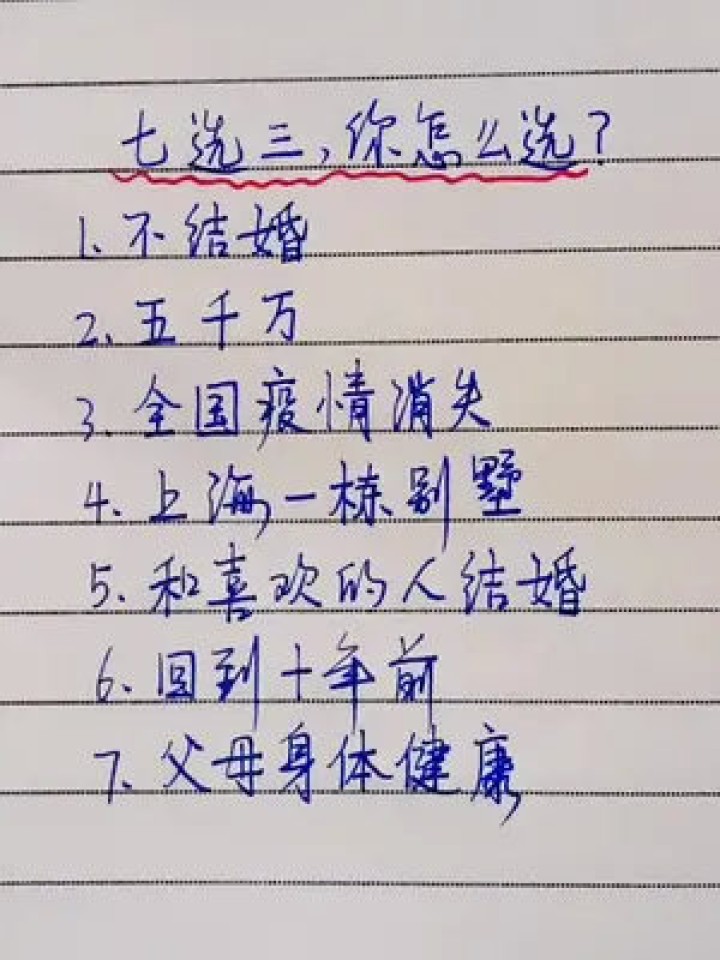 七选三,你怎么选?
1、不结婚
2、五千万
3、全国疫情消失
4、上海一栋别墅
5、和喜欢的人结婚
6、回到十年前
7、父母身体健康